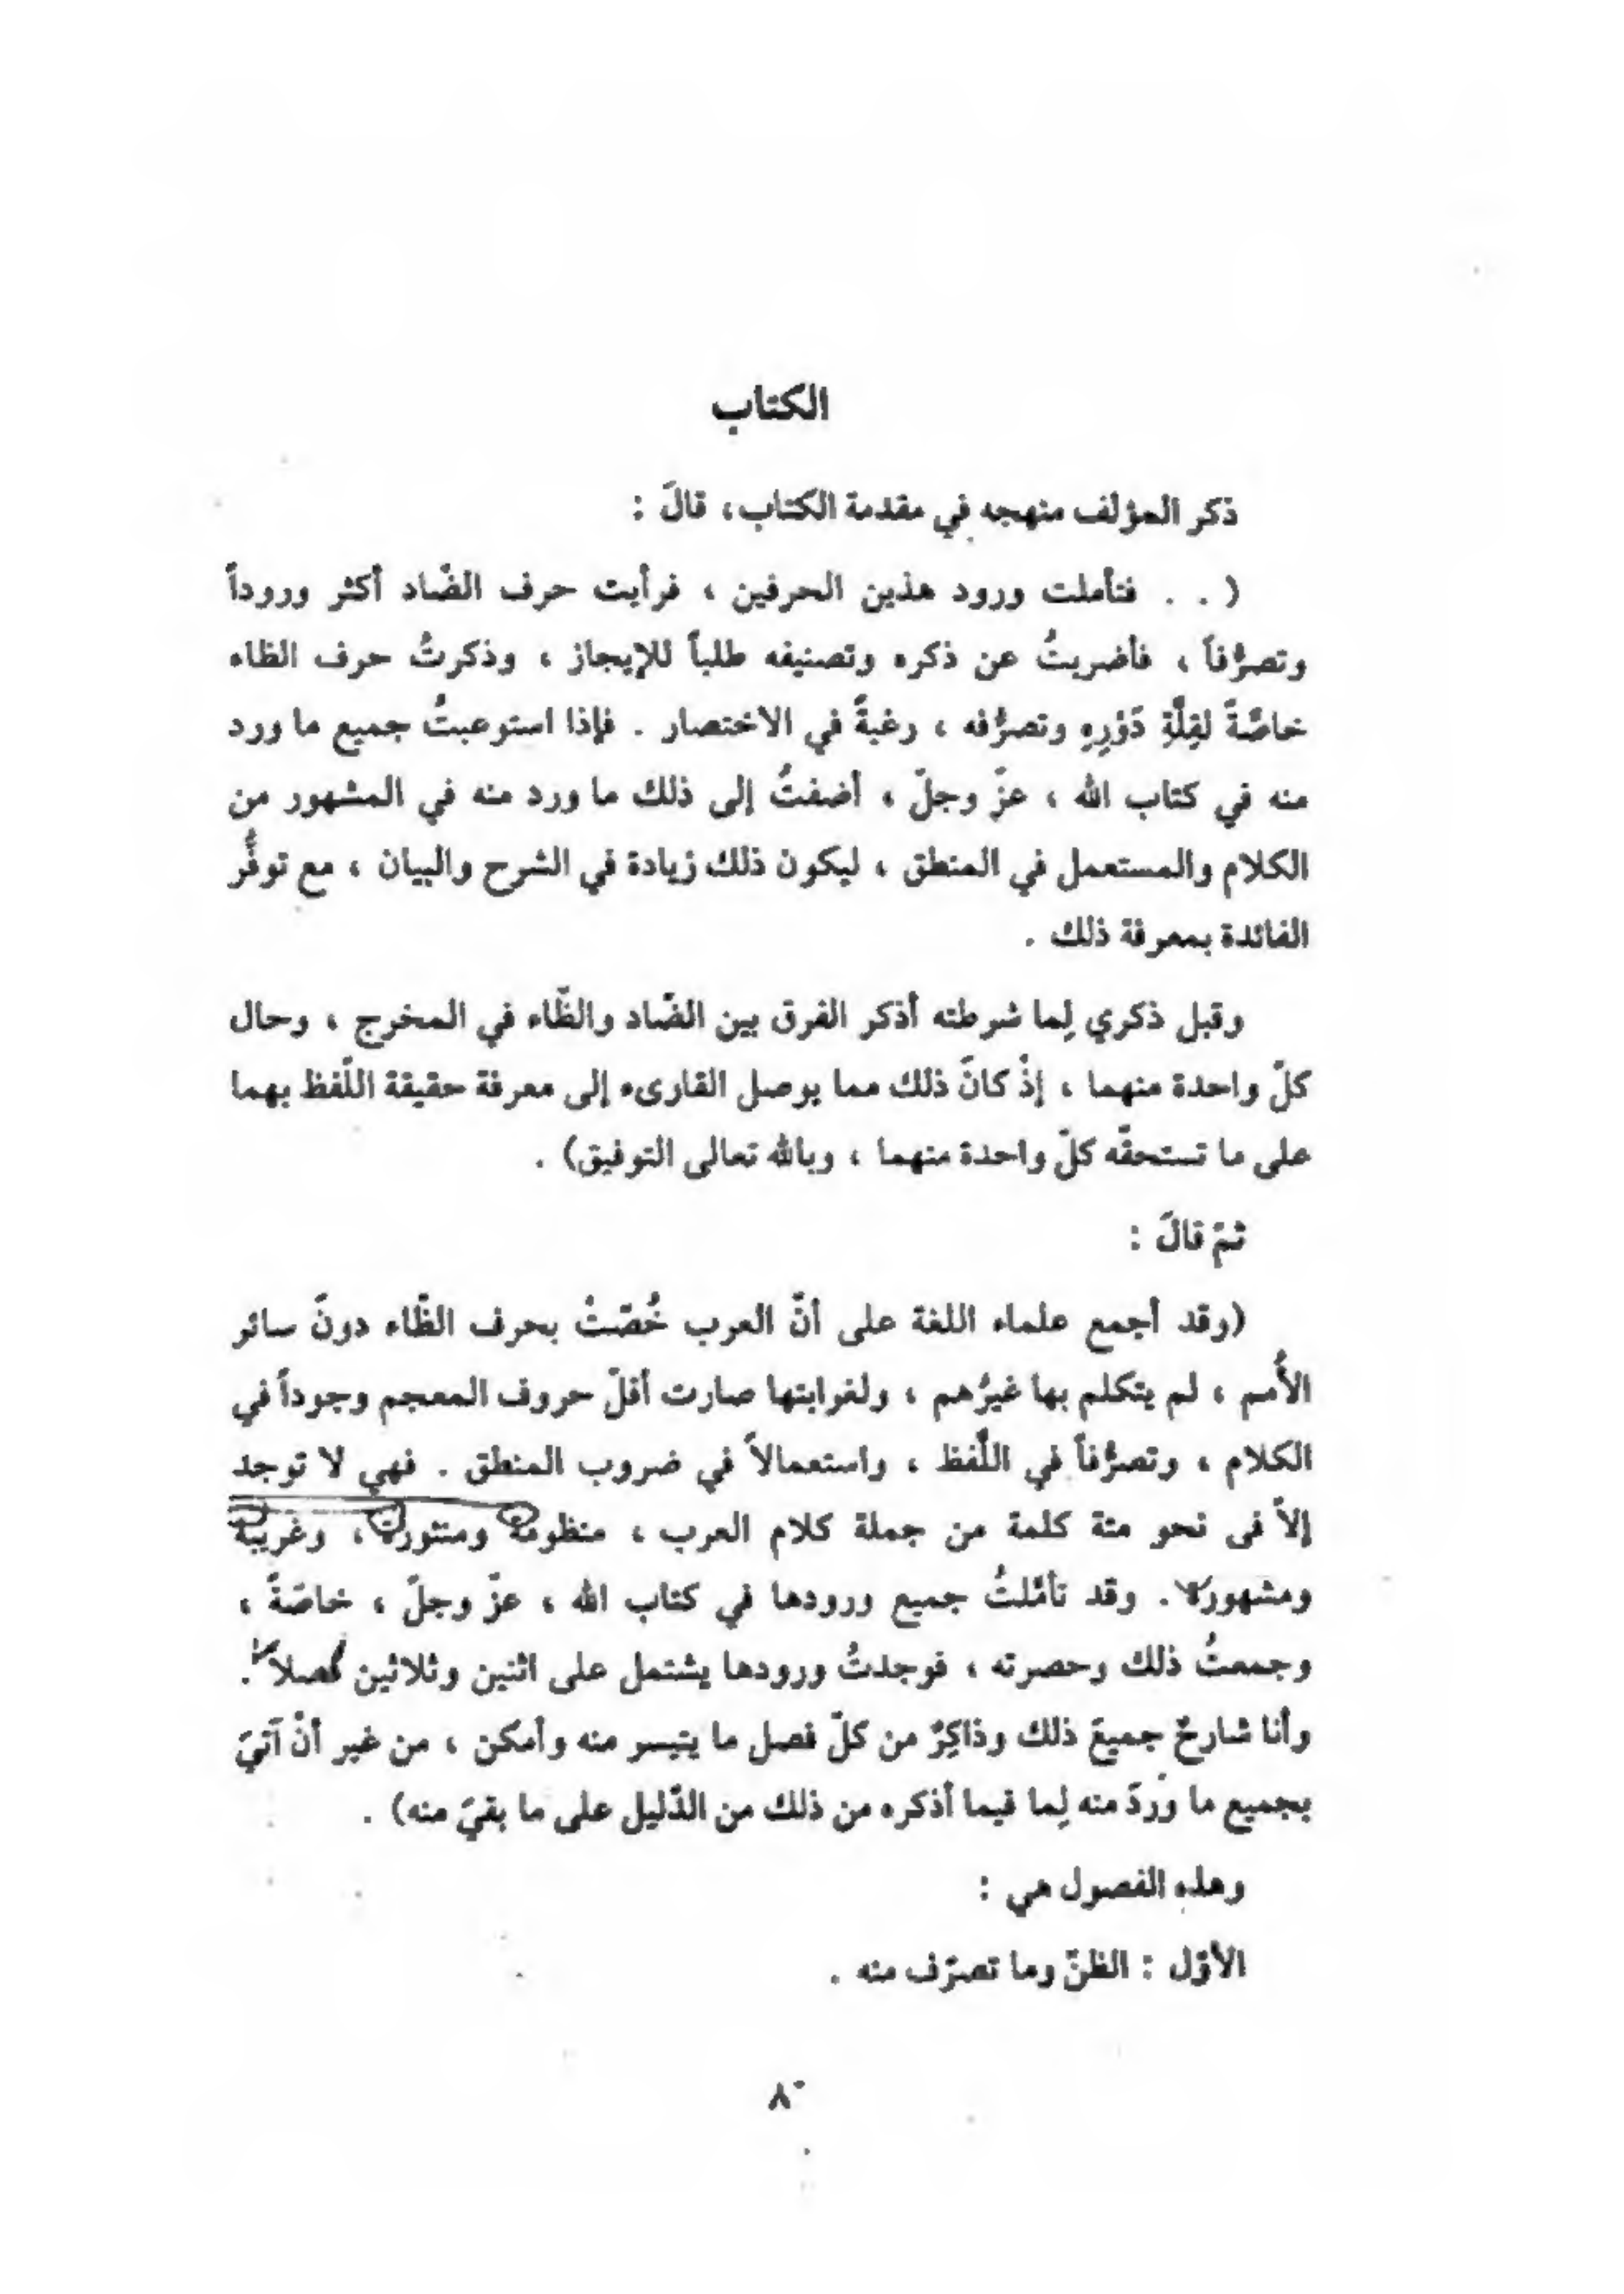 الكتاب
ذكر المؤلف منهجه في مقدمة الكتاب، قالَ :
( . . فتأملت ورود هذين الحرفين ، فرأيت حرف الضّاد أكثر وروداً
وتصرُّفاً ، فأضربتُ عن ذكره وتصنيفه طلباً للإيجاز ، وذكرتُ حرف الظاء
خاصَّةً لقِلَّةِ دَوْرِهِ وتصرُّفه ، رغبةً في الاختصار . فإذا استوعبتُ جميع ما ورد
منه في كتاب الله ، عزّ وجلّ ، أضفتُ إلى ذلك ما ورد منه في المشهور من
الكلام والمستعمل في المنطق ، ليكون ذلك زيادة في الشرح والبيان ، مع توفُّر
الفائدة بمعرفة ذلك .
وقبل ذكري لِما شرطته أذكر الفرق بين الضّاد والظّاء في المخرج ، وحال
كلّ واحدة منهما ، إذْ كانَ ذلك مما يوصل القارىء إلى معرفة حقيقة اللّفظ بهما
على ما تستحقّه كلّ واحدة منهما ، وبالله تعالى التوفيق) .
ثمّ قالَ :
(وقد أجمع علماء اللغة على أنّ العرب خُصّتْ بحرف الظّاء دونَ سائر
الأُمم ، لم يتكلم بها غيرُهم ، ولغرابتها صارت أقلّ حروف المعجم وجوداً في
الكلام ، وتصرُّفاً في اللّفظ ، واستعمالاً في ضروب المنطق . فهي لا توجد
إلاّ في نحو مئة كلمة من جملة كلام العرب ، منظومة ومنثورة ، وغريبة
ومشهورة . وقد تأمّلتُ جميع ورودها في كتاب الله ، عزّ وجلّ ، خاصّةً ،
وجمعتُ ذلك وحصرته ، فوجدتُ ورودها يشتمل على اثنين وثلاثين فصلاً .
وأنا شارحٌ جميعَ ذلك وذاكِرٌ من كلّ فصل ما يتيسر منه وأمكن ، من غير أنْ آتيَ
بجميع ما وَردَ منه لِما فيما أذكره من ذلك من الدّليل على ما بقيَ منه) .
وهذه الفصول هي :
الأوّل : الظنّ وما تصرّف منه .
٨